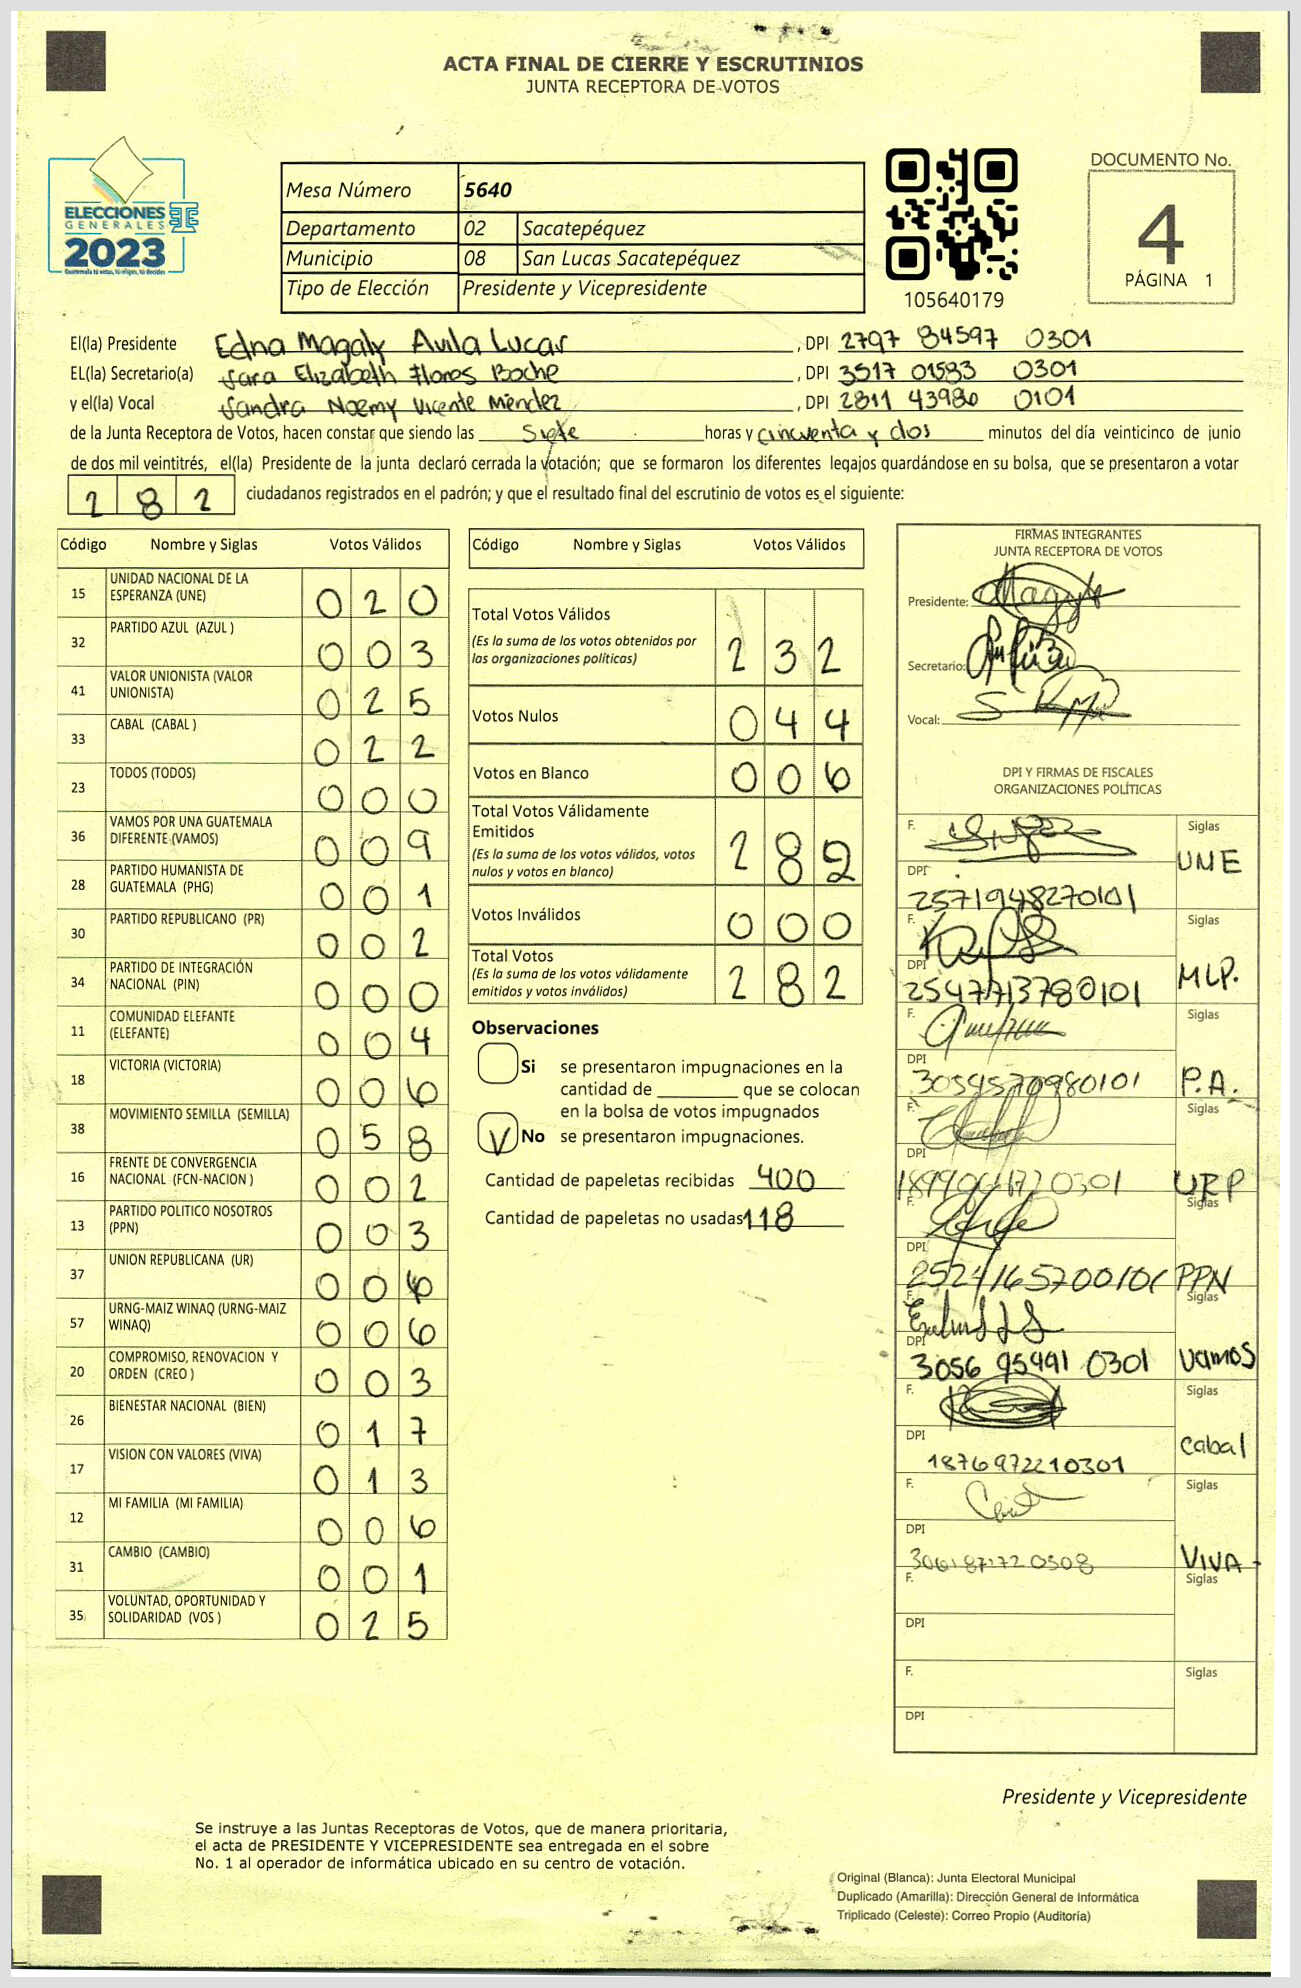 ACTA FINAL DE CIERRE Y ESCRUTINIOS
JUNTA RECEPTORA DE VOTOS
ELECCIONES
GENERALES
2023
Guatemala tú votas, tú eliges, tú decides
Mesa Número 5640
Departamento 02 Sacatepéquez
Municipio 08 San Lucas Sacatepéquez
Tipo de Elección Presidente y Vicepresidente
105640179
DOCUMENTO No.
4
PÁGINA 1
El(la) Presidente Edna Magaly Avila Lucar, DPI 2797 84597 0301
EL(la) Secretario(a) Sara Elizabeth Flores Boche, DPI 3517 01583 0301
y el(la) Vocal Sandra Noemy Vicente Méndez, DPI 2811 43980 0101
de la Junta Receptora de Votos, hacen constar que siendo las Siete horas y cincuenta y dos minutos del día veinticinco de junio
de dos mil veintitrés, el(la) Presidente de la junta declaró cerrada la votación; que se formaron los diferentes legajos guardándose en su bolsa, que se presentaron a votar
282 ciudadanos registrados en el padrón; y que el resultado final del escrutinio de votos es el siguiente:
Código Nombre y Siglas Votos Válidos
15 UNIDAD NACIONAL DE LA ESPERANZA (UNE) 020
32 PARTIDO AZUL (AZUL ) 003
41 VALOR UNIONISTA (VALOR UNIONISTA) 025
33 CABAL (CABAL ) 022
23 TODOS (TODOS) 000
36 VAMOS POR UNA GUATEMALA DIFERENTE (VAMOS) 009
28 PARTIDO HUMANISTA DE GUATEMALA (PHG) 001
30 PARTIDO REPUBLICANO (PR) 002
34 PARTIDO DE INTEGRACIÓN NACIONAL (PIN) 000
11 COMUNIDAD ELEFANTE (ELEFANTE) 004
18 VICTORIA (VICTORIA) 006
38 MOVIMIENTO SEMILLA (SEMILLA) 058
16 FRENTE DE CONVERGENCIA NACIONAL (FCN-NACION ) 002
13 PARTIDO POLITICO NOSOTROS (PPN) 003
37 UNION REPUBLICANA (UR) 006
57 URNG-MAIZ WINAQ (URNG-MAIZ WINAQ) 006
20 COMPROMISO, RENOVACION Y ORDEN (CREO ) 003
26 BIENESTAR NACIONAL (BIEN) 017
17 VISION CON VALORES (VIVA) 013
12 MI FAMILIA (MI FAMILIA) 006
31 CAMBIO (CAMBIO) 001
35 VOLUNTAD, OPORTUNIDAD Y SOLIDARIDAD (VOS ) 025
Código Nombre y Siglas Votos Válidos
Total Votos Válidos
(Es la suma de los votos obtenidos por
las organizaciones políticas) 232
Votos Nulos 044
Votos en Blanco 006
Total Votos Válidamente
Emitidos
(Es la suma de los votos válidos, votos
nulos y votos en blanco) 282
Votos Inválidos 000
Total Votos
(Es la suma de los votos válidamente
emitidos y votos inválidos) 282
Observaciones
Si se presentaron impugnaciones en la
cantidad de ________ que se colocan
en la bolsa de votos impugnados
V No se presentaron impugnaciones.
Cantidad de papeletas recibidas 400
Cantidad de papeletas no usadas 118
FIRMAS INTEGRANTES
JUNTA RECEPTORA DE VOTOS
Presidente:
Secretario:
Vocal:
DPI Y FIRMAS DE FISCALES
ORGANIZACIONES POLÍTICAS
F. Siglas
UNE
DPI
2571948270101
F. Siglas
MLP.
DPI
2547713780101
F. Siglas
DPI
3054570980101 P.A.
F. Siglas
DPI
0301 URP
F. Siglas
DPI
PPN
F. Siglas
DPI
3056 95491 0301 Vamos
F. Siglas
Cabal
DPI
1876972210301
F. Siglas
DPI
VIVA
F. Siglas
DPI
F. Siglas
DPI
Presidente y Vicepresidente
Se instruye a las Juntas Receptoras de Votos, que de manera prioritaria,
el acta de PRESIDENTE Y VICEPRESIDENTE sea entregada en el sobre
No. 1 al operador de informática ubicado en su centro de votación.
Original (Blanca): Junta Electoral Municipal
Duplicado (Amarilla): Dirección General de Informática
Triplicado (Celeste): Correo Propio (Auditoría)